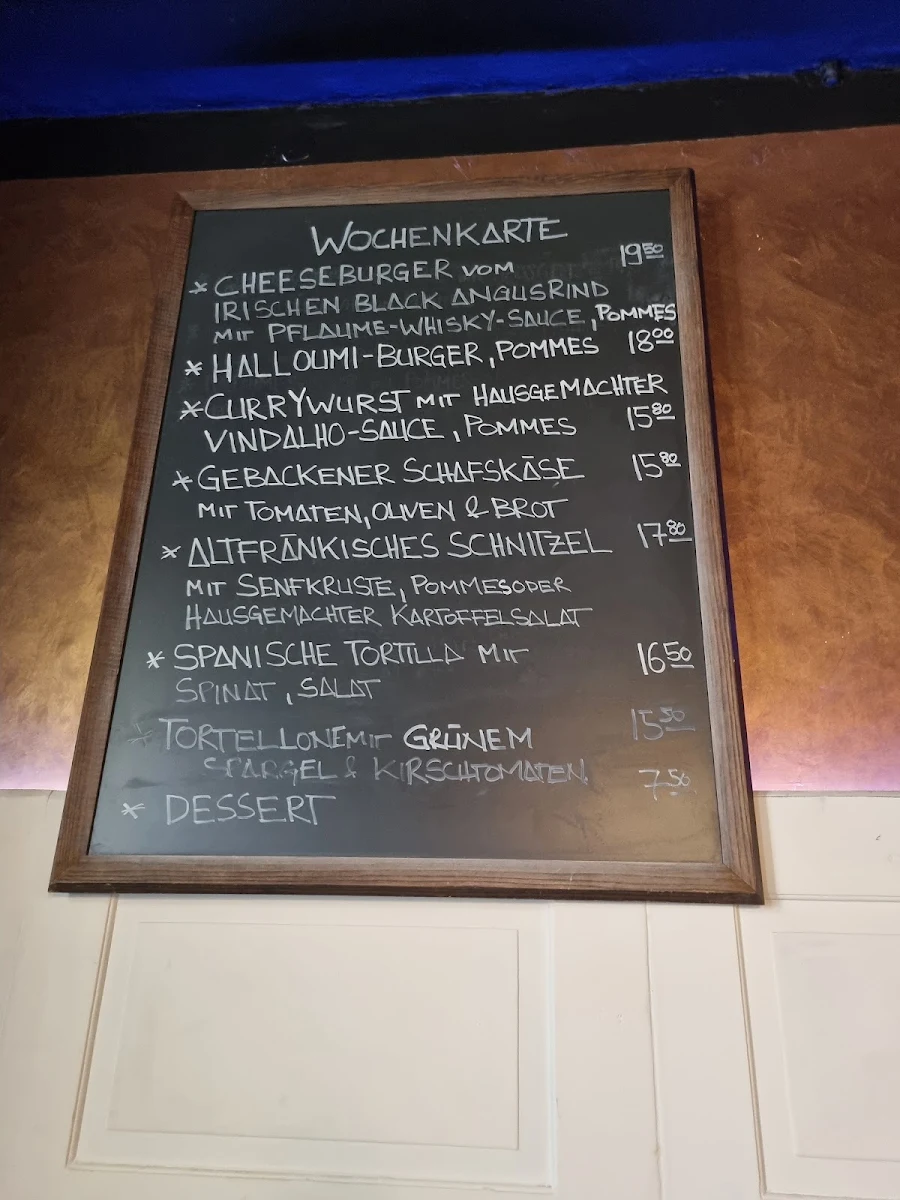 WOCHENKARTE
* CHEESEBURGER VOM 19 50
IRISCHEN BLACK ANGUSRIND
MIT PFLAUME-WHISKY-SAUCE, POMMES
* HALLOUMI-BURGER, POMMES 18 00
* CURRYWURST MIT HAUSGEMACHTER
VINDALHO-SAUCE, POMMES 15 80
* GEBACKENER SCHAFSKÄSE 15 80
MIT TOMATEN, OLIVEN & BROT
* ALTFRÄNKISCHES SCHNITZEL 17 80
MIT SENFKRUSTE, POMMES ODER
HAUSGEMACHTER KARTOFFELSALAT
* SPANISCHE TORTILLA MIT 16 50
SPINAT, SALAT
* TORTELLONE MIT GRÜNEM 15 50
SPARGEL & KIRSCHTOMATEN.
* DESSERT 7 50